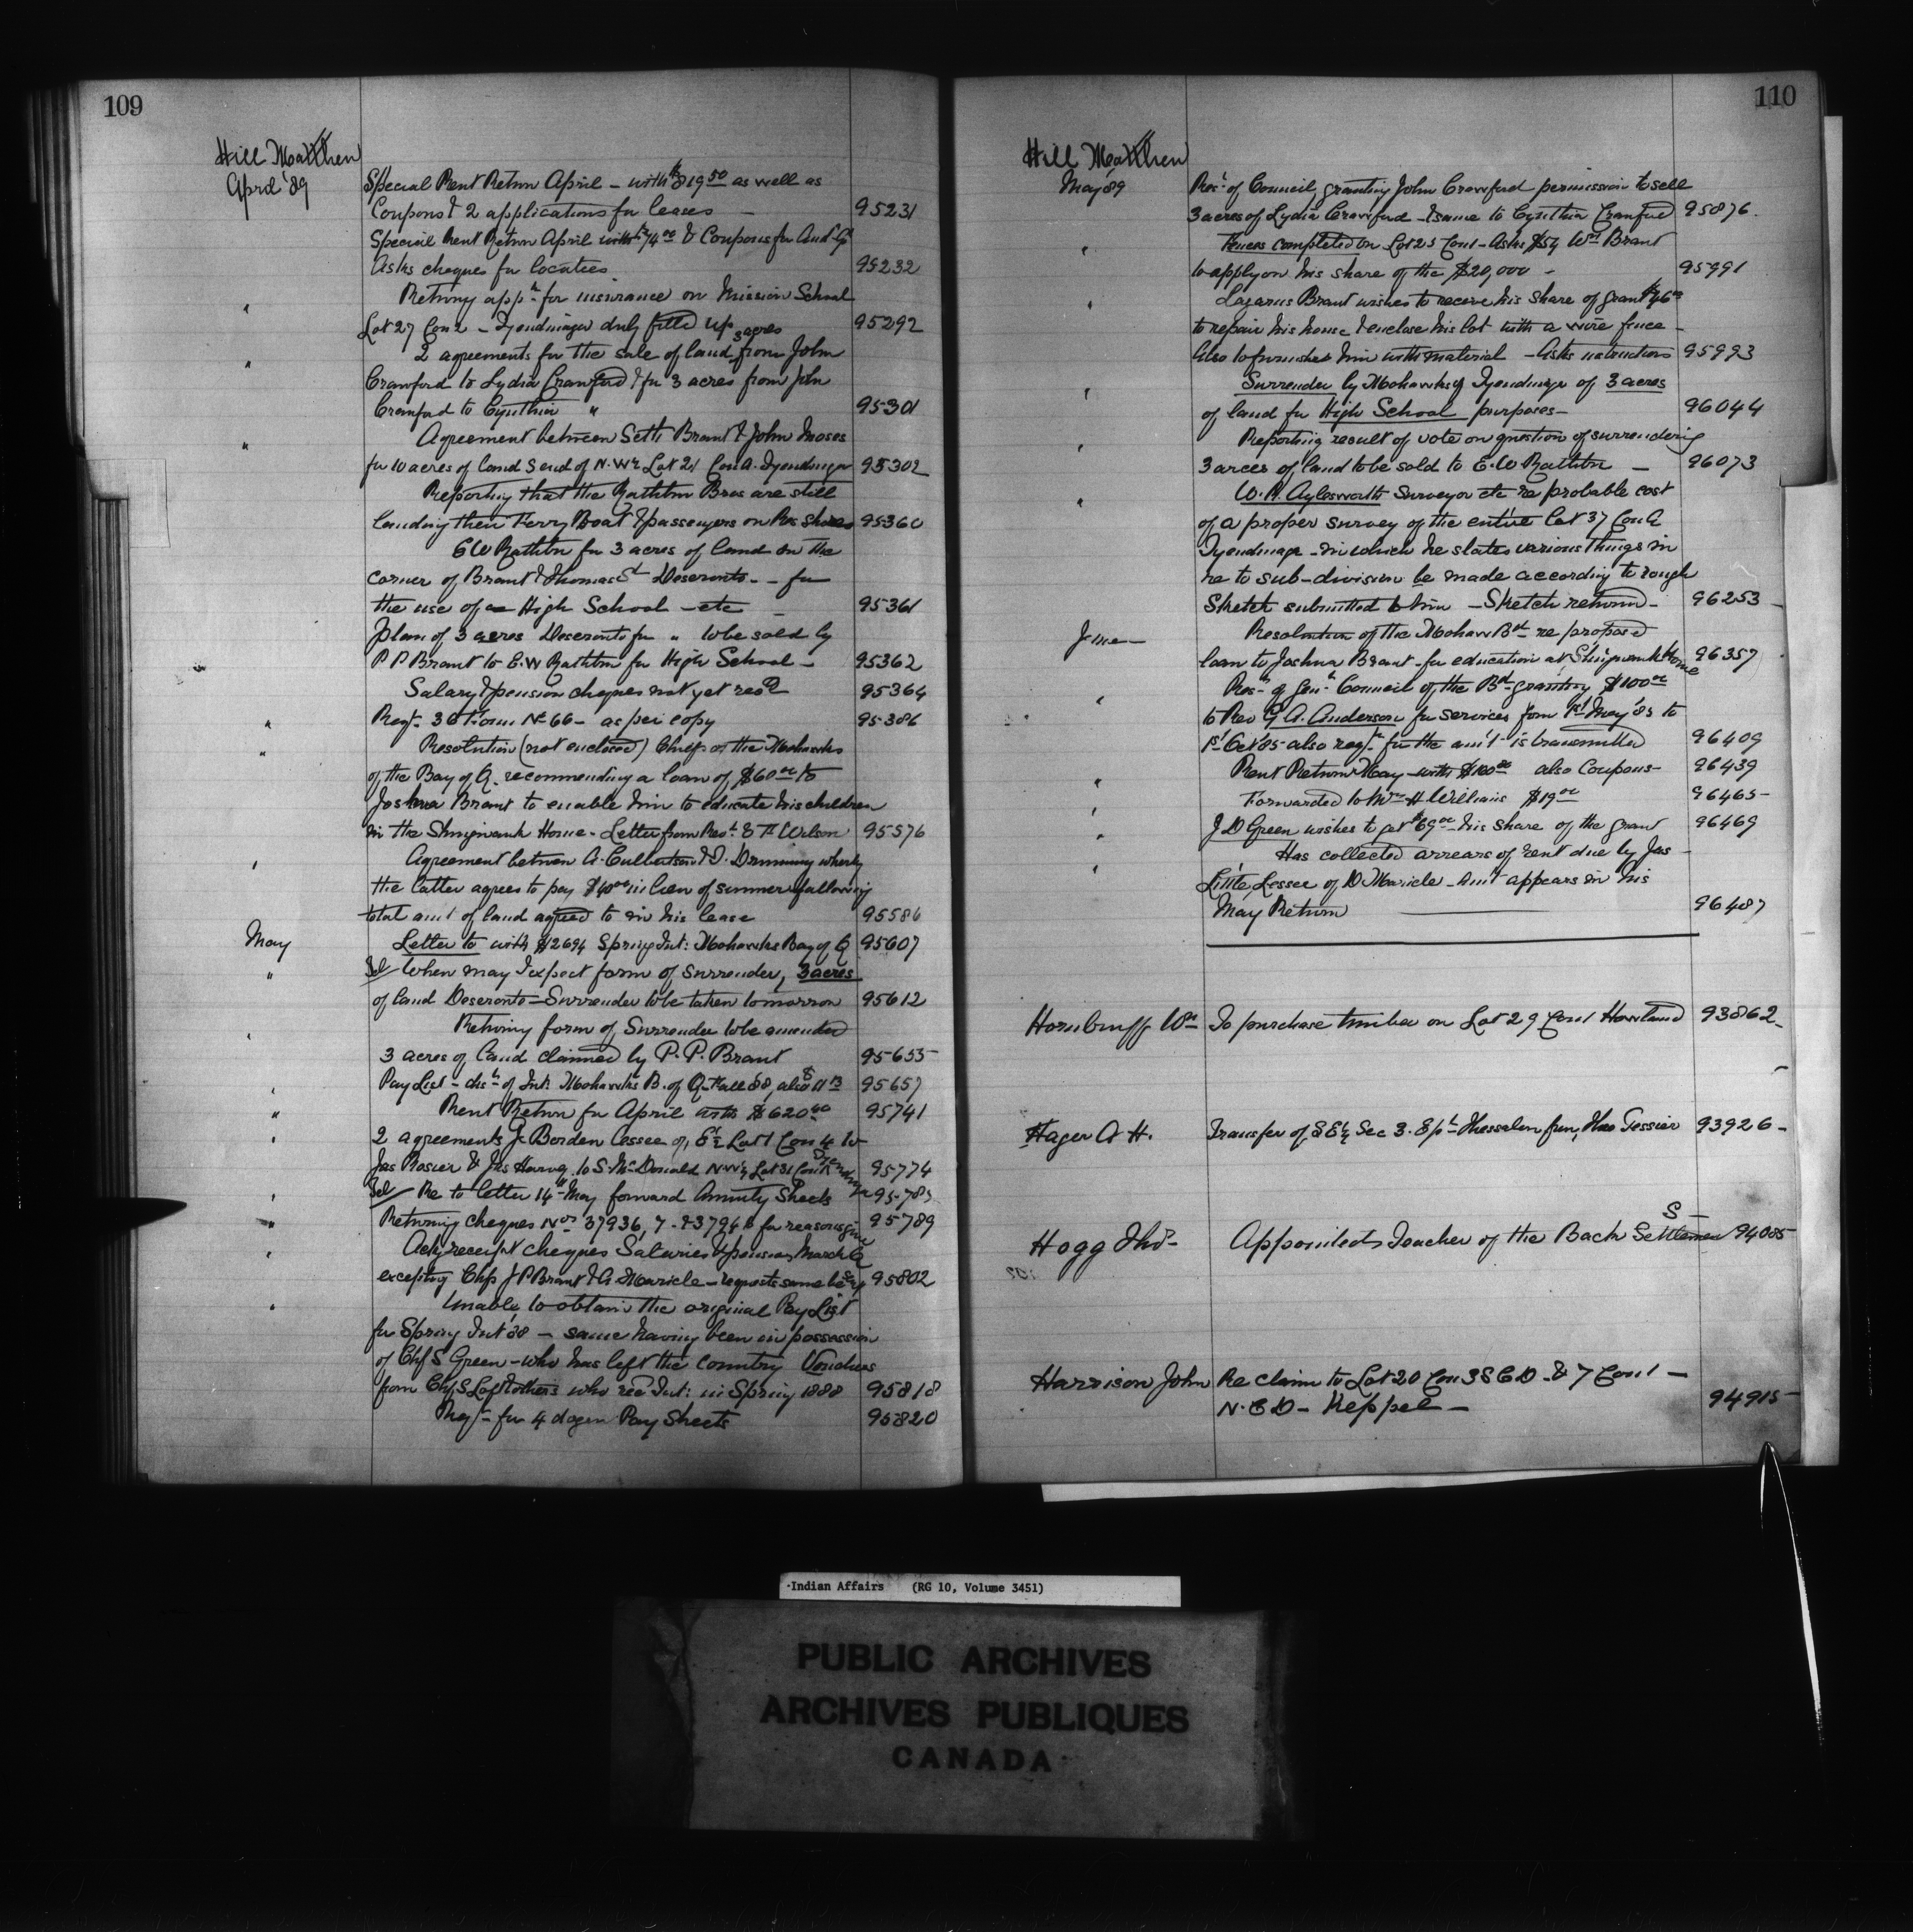 109
Hill Matthew
April '89
Special Rent Return April - with $819 50 as well as
Coupons & 2 applications for leases - 95231
Special Rent Return April with $74 00 & Coupons for Aud Gl
Asks cheques for locatees. 95232
" Returng appn for insurance on Mission School
Lot 27 Con 2 - Tyendinaga duly filled up 95292
" 2 agreements for the sale of land 3 acres from John
Crawford to Lydia Crawford & for 3 acres from John
Crawford to Cynthia " 95301
" Agreement between Seth Brant & John Moses
for 10 acres of land S end of N.W¼ Lot 21 Con A. Tyendinaga 95302
Reporting that the Rathbun Bros are still
landing their Ferry Boat & passengers on Res shores 95360
E W Rathbun for 3 acres of land on the
corner of Brant & Thomas St Deseronto - for
the use of a High School - etc - 95361
Plan of 3 acres Deseronto for " to be sold by
P P Brant to E.W Rathbun for High School - 95362
Salary & pension cheques not yet recd 95364
" Reqt. 36 Form No 66 - as per copy 95386
" Resolution (not enclosed) Chiefs of the Mohawks
of the Bay of Q. recommending a loan of $60 00 to
Joshua Brant to enable him to educate his children
in the Shingwauk Home - Letter from Revt. E F Wilson 95576
" Agreement between A. Culbertson & D. Drumming whereby
the latter agrees to pay $40 00 in lieu of summer fallowing
total amt of land agreed to in his lease 95586
May Letter to with $2694 Spring Int: Mohawks Bay of Q 95607
" Tel When may I expect form of surrender, 3 acres
of land Deseronto - Surrender to be taken tomorrow 95612
" Returning form of Surrender to be amended
3 acres of land claimed by P. P. Brant 95655
" Pay List - disn of Int: Mohawks B. of Q - Fall 88, also $11 13 95657
" Rent Return for April with $620 40 95741
" 2 agreements J. Borden lessee of, E½ Lot 1 Con 4 to
Jas Rosier & Jas Harvey to S. McDonald N.W¼ Lot 31 Con Tyendinaga 95774
" Tel Re to letter 14th May forward Annuity Sheets 95785
" Returning cheques Nos 37936, 7 - & 37946 for reasons given 95789
" Ackg receipt cheques Salaries & pensions, March Qr
excepting Chfs J P Brant & A. Maricle - requests same be sent 95802
" Unable to obtain the original Pay List
for Spring Int '88 - same having been in possession
of Chf S Green - who has left the country Vouchers
from Chf S Loft & others who recd Int: in Spring 1888 95818
Reqt for 4 dozen Pay Sheets 95820
110
Hill Matthew
May '89 Rest. of Council granting John Crawford permission to sell
3 acres of Lydia Crawford - & same to Cynthia Crawford 95876.
" Fences completed on Lot 25 Con 1 - Asks $54 Wm Brant
to apply on his share of the $20,000 - 95991
" Lazarus Brant wishes to receive his share of grant $46 00
to repair his house & enclose his lot with a wire fence -
Also to furnished him with material - Asks instructions 95993
" Surrender by Mohawks of Tyendinaga of 3 acres
of land for High School purposes - 96044
" Reporting result of vote on question of surrendering
3 acres of land to be sold to E.W Rathbun - 96073
" W. R. Aylesworth Surveyor etc re probable cost
of a proper survey of the entire lot 37 Con A
Tyendinaga - in which he states various things in
re to sub-division be made according to rough
Sketch submitted to him - Sketch returnd - 96253 -
June - Resolution of the Mohawk Bd re proposed
loan to Joshua Brant - for education at Shingwauk Home 96357
" Resn of Genl Council of the Bd granting $100 00
to Rev G. A. Anderson for services from 1st May '85 to
1st Oct '85 also reqn for the am't - is transmitted 96409
" Rent Return May with $100 00 also Coupons - 96439
" Forwarded to Mrs H Williams $19 00 96465 -
" J D Green wishes to get $69 00 his share of the grant 96469
" Has collected arrears of rent due by Jas -
Little, Lessee of D Maricle - Amt appears in his
May Return 96487
Hornbruff Wm To purchase timber on Lot 29 Con 1 Howland 93862 -
Hager A H. Transfer of S E¼ Sec 3. Tp Thessalon from Thos Tessier 93926 -
Hogg Thos - Appointed Teacher of the Back Settlement S - 94085
Harrison John Re claim to Lot 20 Con 3 S C D - & 7 Con 1 -
N. C D - Keppel - 94915
Indian Affairs (RG 10, Volume 3451)
PUBLIC ARCHIVES
ARCHIVES PUBLIQUES
CANADA